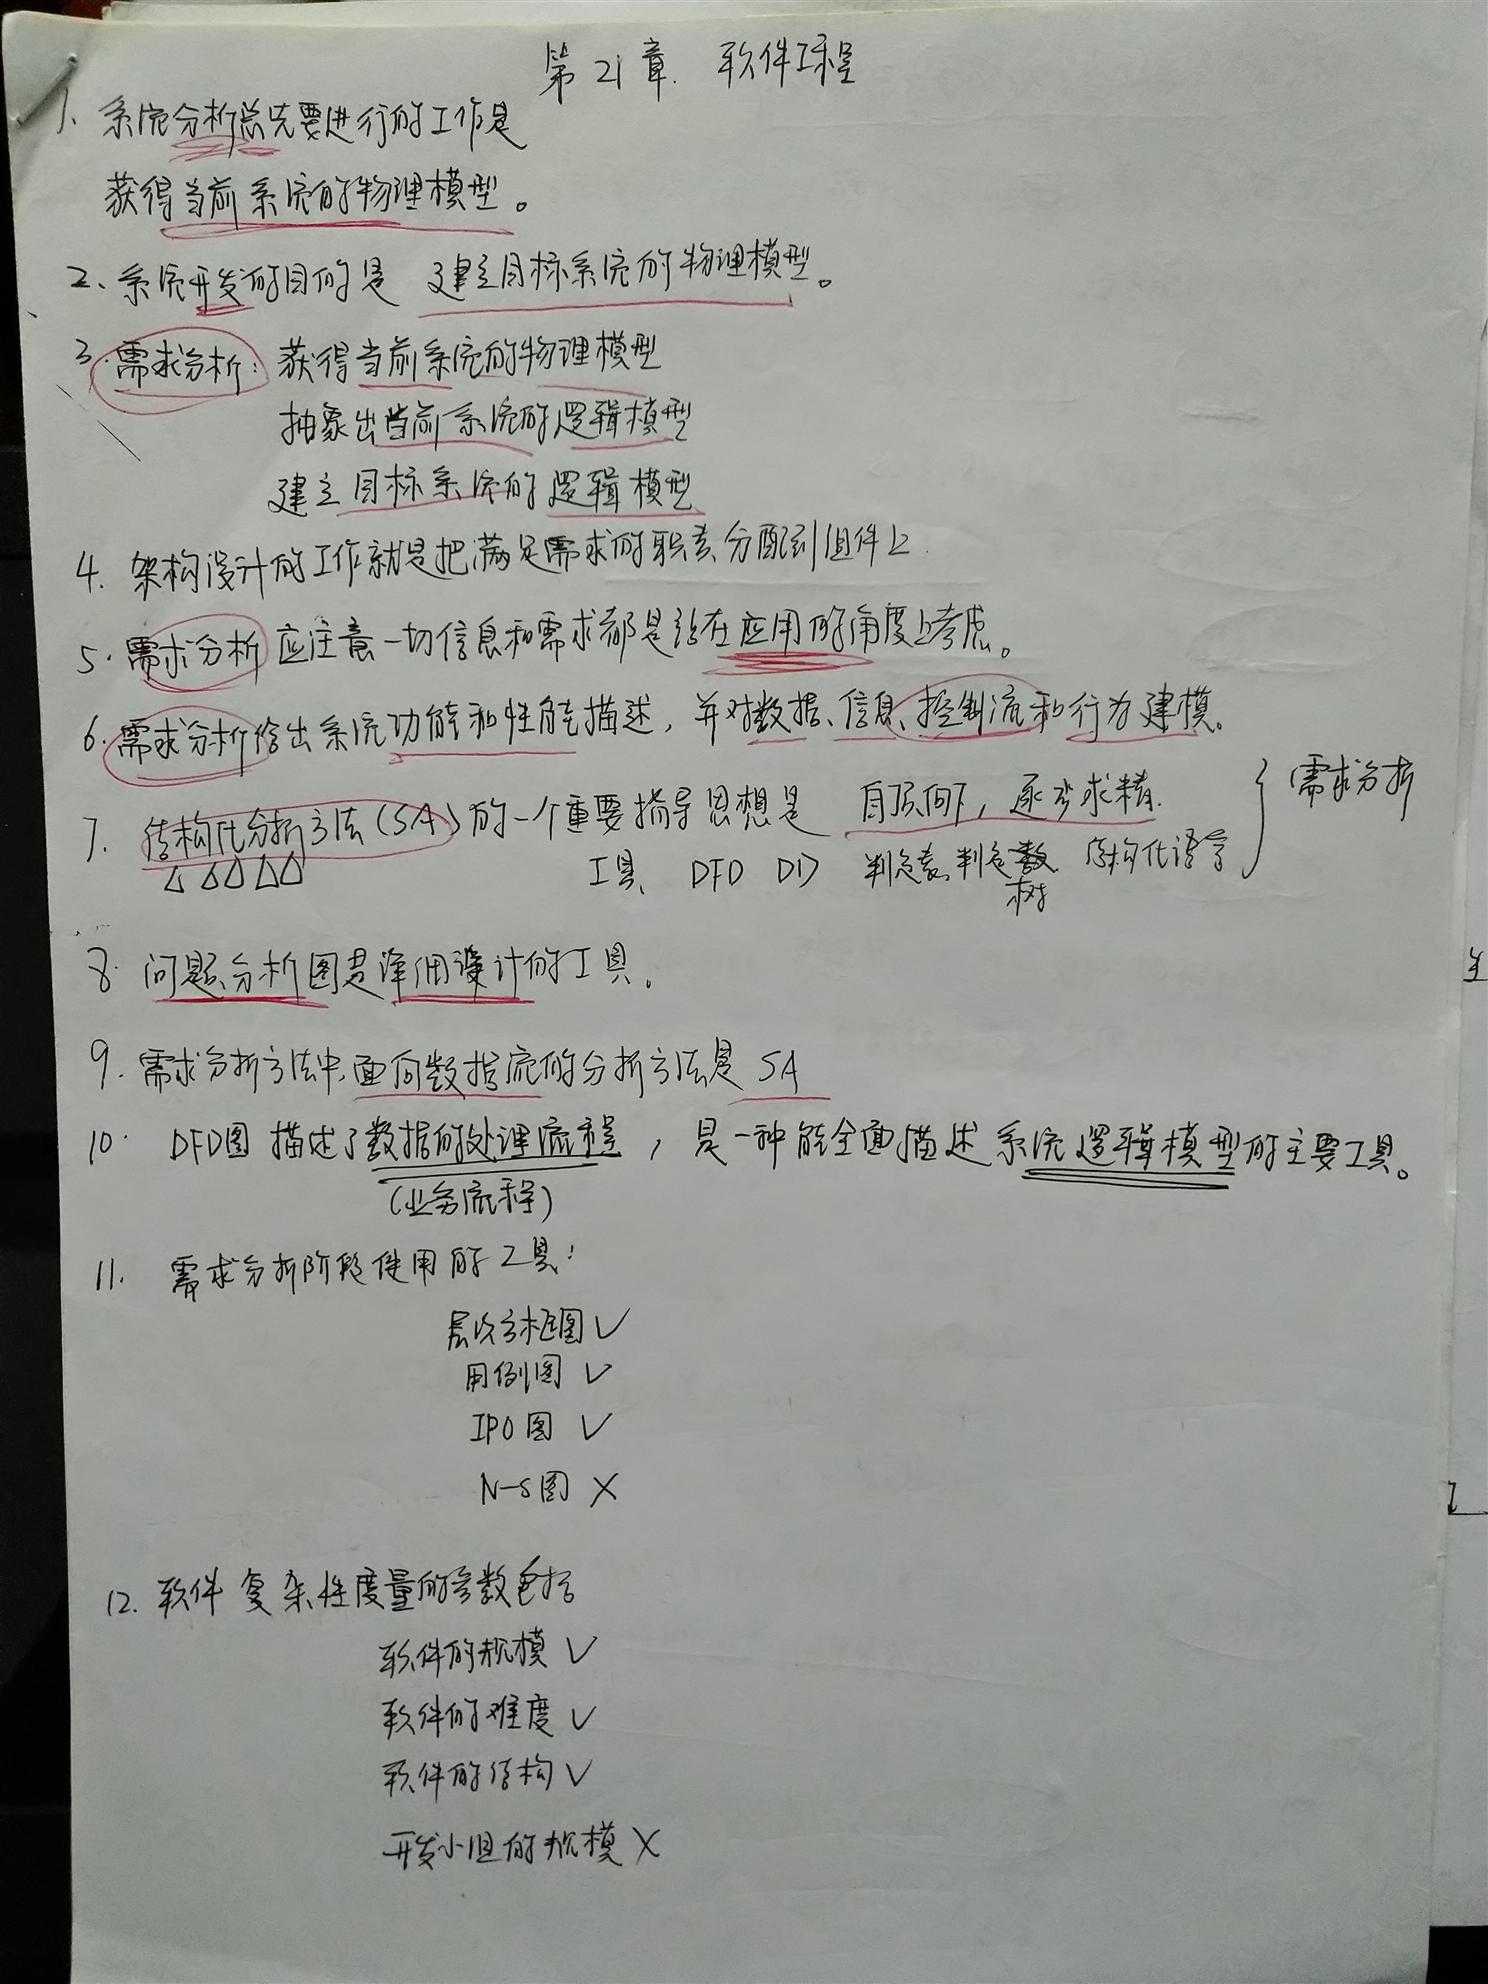 第21章. 软件工程
1、系统分析总先要进行的工作是
获得当前系统的物理模型。
2、系统开发的目的是 建立目标系统的物理模型。
3.需求分析：获得当前系统的物理模型
抽象出当前系统的逻辑模型
建立目标系统的逻辑模型
4. 架构设计的工作就是把满足需求的职责分配到组件上.
5. 需求分析应注意一切信息和需求都是站在应用的角度上考虑。
6. 需求分析给出系统功能和性能描述，并对数据、信息、控制流和行为建模。
7. 结构化分析方法(SA)的一个重要指导思想是 自顶向下，逐步求精. } 需求分析
工具、DFD DD 判定表、判定树 结构化语言
8. 问题分析图是详细设计的工具。
9. 需求分析方法中,面向数据流的分析方法是SA
10. DFD图 描述了数据的处理流程，是一种能全面描述系统逻辑模型的主要工具。
(业务流程)
11. 需求分析阶段使用的工具:
层次方框图 √
用例图 √
IPO图 √
N-S图 ×
12. 软件复杂性度量的参数包括
软件的规模 √
软件的难度 √
软件的结构 √
开发小组的规模 ×